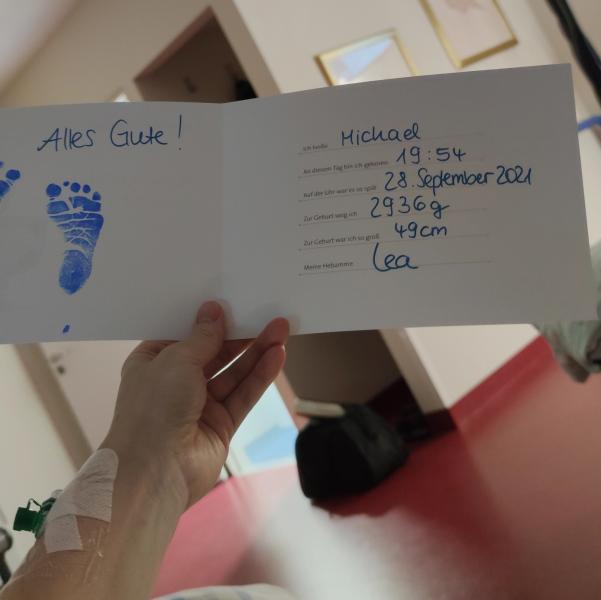 Alles Gute!
Ich heiße Michael
An diesem Tag bin ich geboren 19:54
Auf der Uhr war es so spät 28. September 2021
Zur Geburt wog ich 2936g
Zur Geburt war ich so groß 49cm
Meine Hebamme Lea